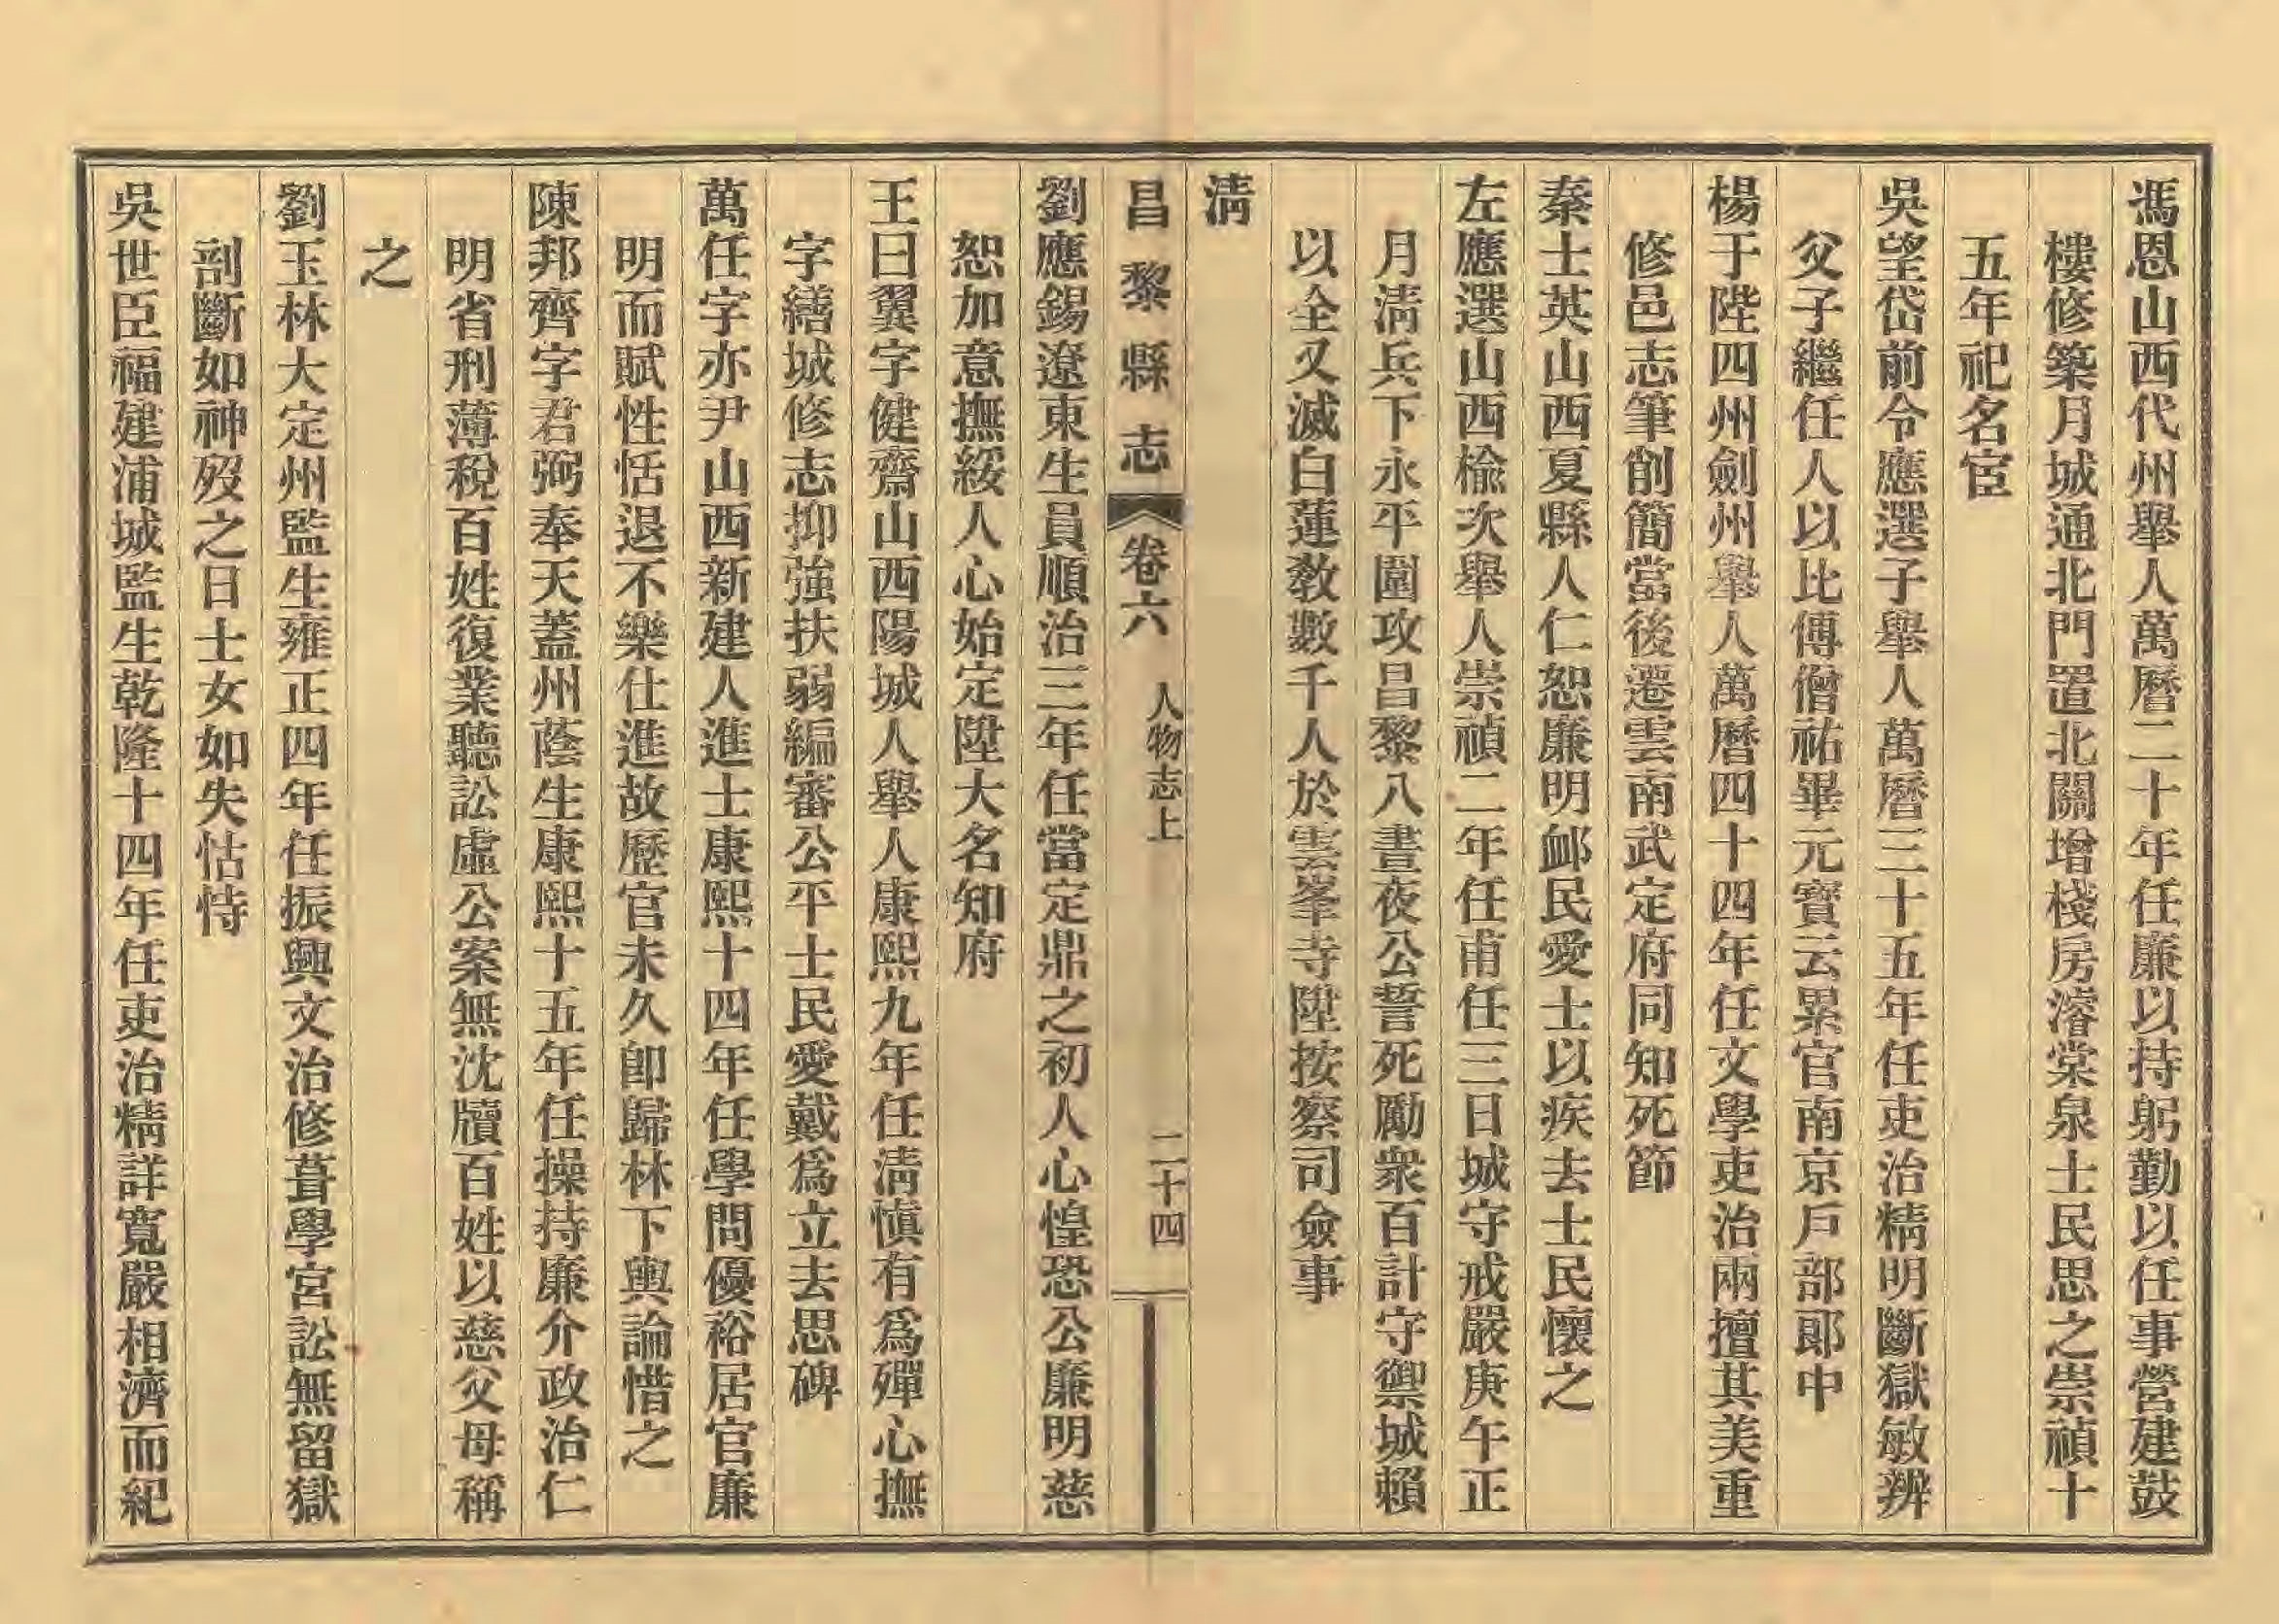 馮恩山西代州舉人萬曆二十年任廉以持躬勤以任事營建鼓
樓修築月城通北門置北關增棧房濬棠泉士民思之崇禎十
五年祀名宦
吳望岱前令應選子舉人萬曆三十五年任吏治精明斷獄敏辨
父子繼任人以比傅僧祐畢元賓云累官南京戶部郎中
楊于陛四州劍州舉人萬曆四十四年任文學吏治兩擅其美重
修邑志筆削簡當後遷雲南武定府同知死節
秦士英山西夏縣人仁恕廉明衈民愛士以疾去士民懷之
左應選山西榆次舉人崇禎二年任甫任三日城守戒嚴庚午正
月淸兵下永平圍攻昌黎八晝夜公誓死勵衆百計守禦城賴
以全又滅白蓮敎數千人於雲峯寺陞按察司僉事
淸
昌黎縣志
卷六
人物志上
二十四
劉應錫遼東生員順治三年任當定鼎之初人心惶恐公廉明慈
恕加意撫綏人心始定陞大名知府
王曰翼字健齋山西陽城人舉人康熙九年任淸愼有爲殫心撫
字繕城修志抑強扶弱編審公平士民愛戴爲立去思碑
萬任字亦尹山西新建人進士康熙十四年任學問優裕居官廉
明而賦性恬退不樂仕進故歷官未久卽歸林下輿論惜之
陳邦齊字君弼奉天蓋州蔭生康熙十五年任操持廉介政治仁
明省刑薄稅百姓復業聽訟虛公案無沈牘百姓以慈父母稱
之
劉玉林大定州監生雍正四年任振興文治修葺學宮訟無留獄
剖斷如神歿之日士女如失怙恃
吳世臣福建浦城監生乾隆十四年任吏治精詳寬嚴相濟而紀